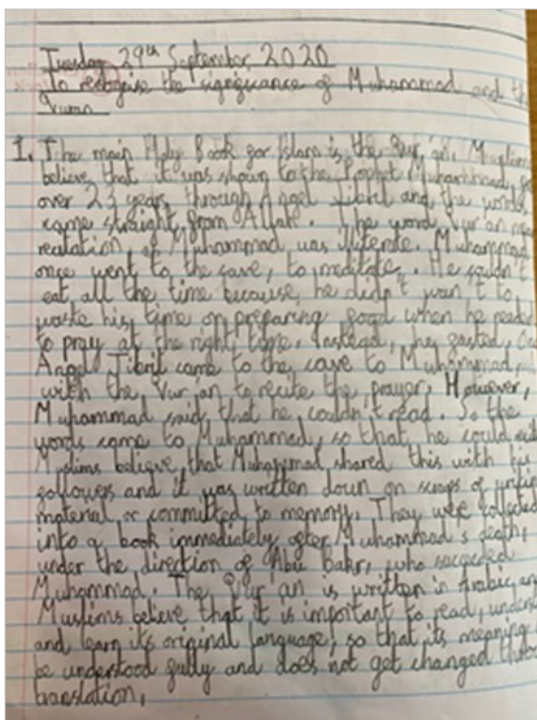 Tuesday 29th September 2020
To recognise the significance of Muhammad and th
Quran
1. The main Holy Book for Islam is the Qur'an. Muslims
believe that it was shown to the Prophet Muhammad,
over 23 years, through Angel Jibril and the words
came straight from Allah. The word Qur'an
recitation, Muhammad was illiterate. Muhammad
once went to the cave, to meditate. He couldn't
eat, all the time because, he didn't wan't to
waste his time on preparing food when he needed
to pray at the right time. Instead, he fasted,
Angel Jibril came to the cave to Muhammad,
with the Qur'an to recite the prayer. However,
Muhammad said that he couldn't read. So the
words came to Muhammad, so that he could
Muslims believe, that Muhammad, shared this with his
followers and it was written down on scraps of
material or committed to memory. They were collected
into a book immediately after Muhammad's death,
under the direction of Abu Bakr, who
Muhammad. The Qur'an is written in Arabic, an
Muslims believe that it is important to read, unders
and learn its original language, so that its meaning
be understood fully and does not get changed throu
translation.